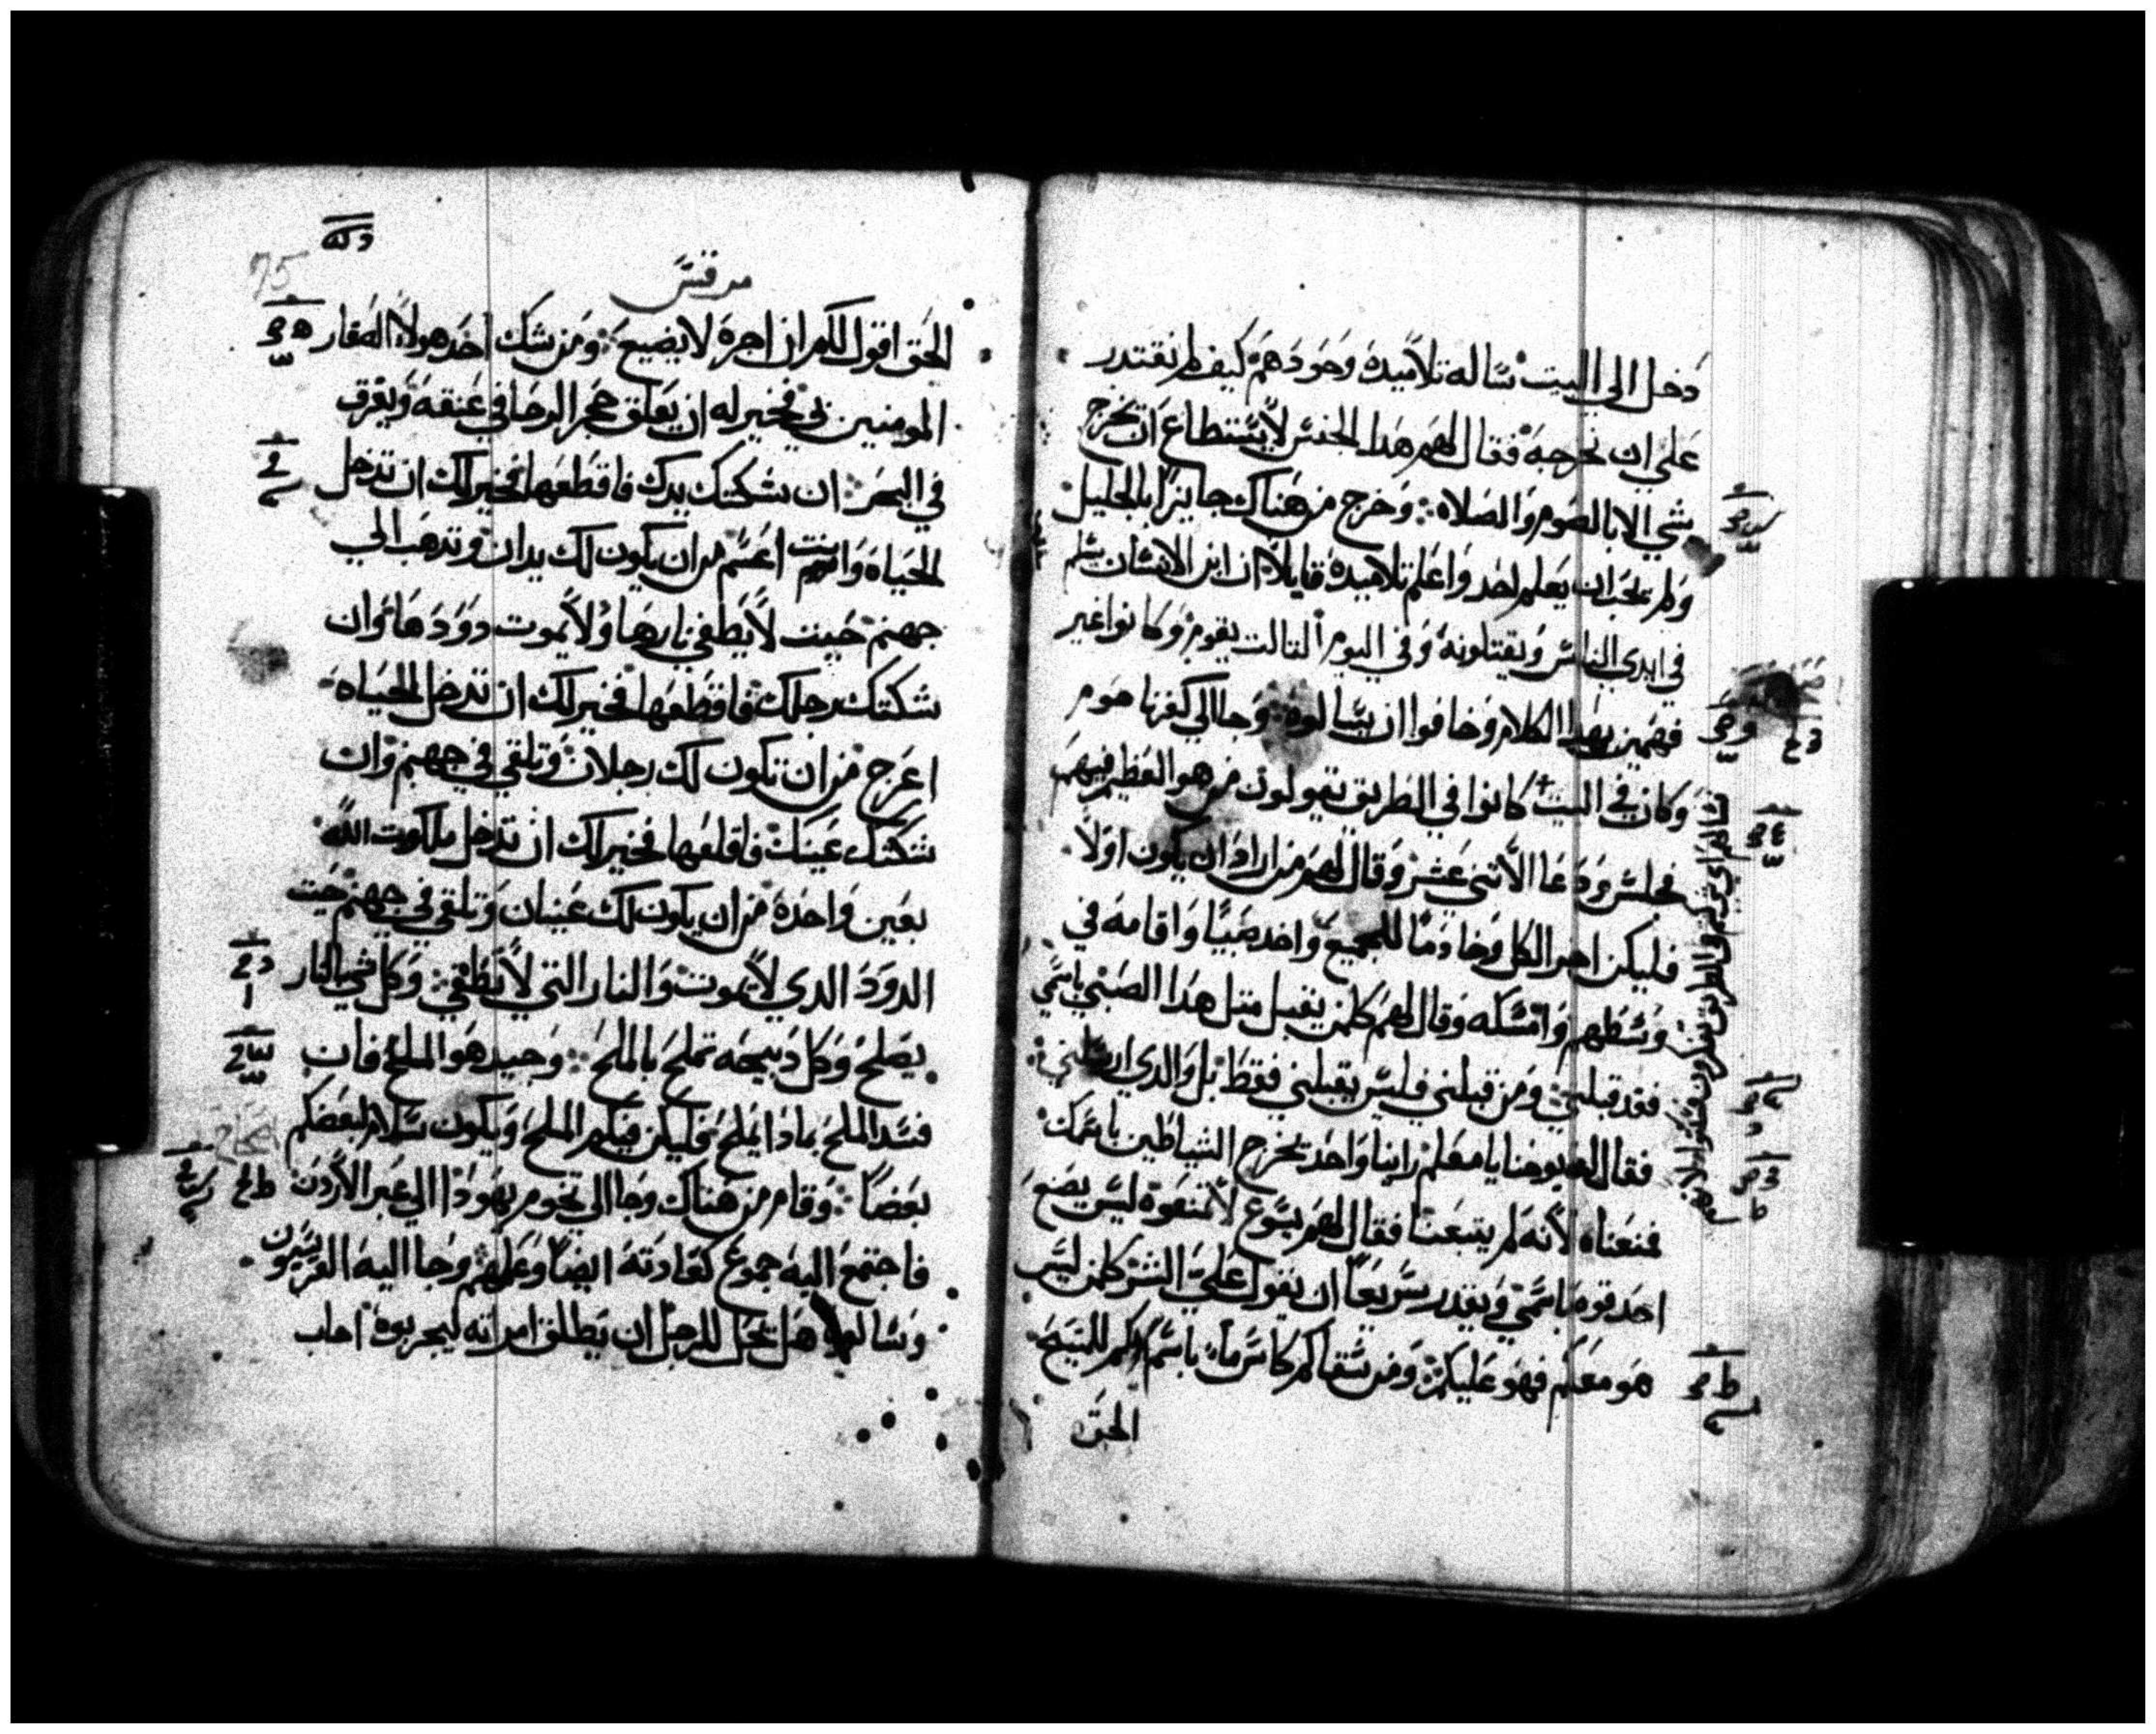 دخل الى البيت ساله تلاميده وحودهم كيف لم نقتدر
على ان نخرجه فقال لهم هدا الجنس لا يستطاع ان يخرج
شي الا بالصوم والصلاه وخرج من هناك جايزا بالجليل
ولم يحب ان يعلم احد واعلم تلاميده قايلا ان ابن الانسان يسلم
في ايدي الناس ويقتلونه وفي اليوم التالت يقوم وكانوا غير
فهمين بهدا الكلام وخافوا ان يسالوه وجا الى كفرنا حوم
وكان في البيت كانوا في الطريق يقولون من هو العظيم فيهم
فجلس ودعا الاتني عشر وقال لهم من اراد ان يكون اولا
فليكن اخر الكل وخادما للجميع واخد صبيا واقامه في
وسطهم وامسكه وقال لهم كلمن يقبل متل هدا الصبي باسمي
فقد قبلني ومن قبلني فليس يقبلني فقط بل والدي ارسلني
فقال له يوحنا يا معلم راينا واحد يخرج الشياطين باسمك
فمنعناه لانه لم يتبعنا فقال لهم يسوع لا تمنعوه ليس يضع
احد قوه باسمي ويقدر سريعا ان يقول علي الشر كلمن ليس
هو معكم فهو عليكم ومن سقاكم كاس ماء باسم انكم للمسيح
الحق
مرقس
75
الحق اقول لكم ان اجره لا يضيع ومن شك احد هولاء الصغار
المومنين بي فخير له ان يعلق حجر الرحا في عنقه ويغرق
في البحر ان شكتك يدك فاقطعها فخير لك ان تدخل
الحياه وانت اعسم من ان يكون لك يدان وتدهب الى
جهنم حيت لا يطفي نارها ولا يموت دودها وان
شكتك رجلك فاقطعها فخير لك ان تدخل الحياه
اعرج من ان تكون لك رجلان وتلقي في جهنم وان
شكتك عينك فاقلعها فخير لك ان تدخل ملكوت الله
بعين واحده من ان يكون لك عينان وتلقي في جهنم حيت
الدود الدي لا يموت والنار التي لا تطفي وكل شي بالنار
يصلح وكل دبيحه تملح بالملح وجيد هو الملح فان
فسد الملح بمادا يملح فليكن فيكم الملح ويكون سلام لبعضكم
بعضا وقام من هناك وجا الى تخوم يهودا الى عبر الاردن
فاجتمع اليه جموع كعادته ايضا وعلمهم وجا اليه الفريسيون
وسالوه هل يحل للرجل ان يطلق امراته ليجربوه اجاب